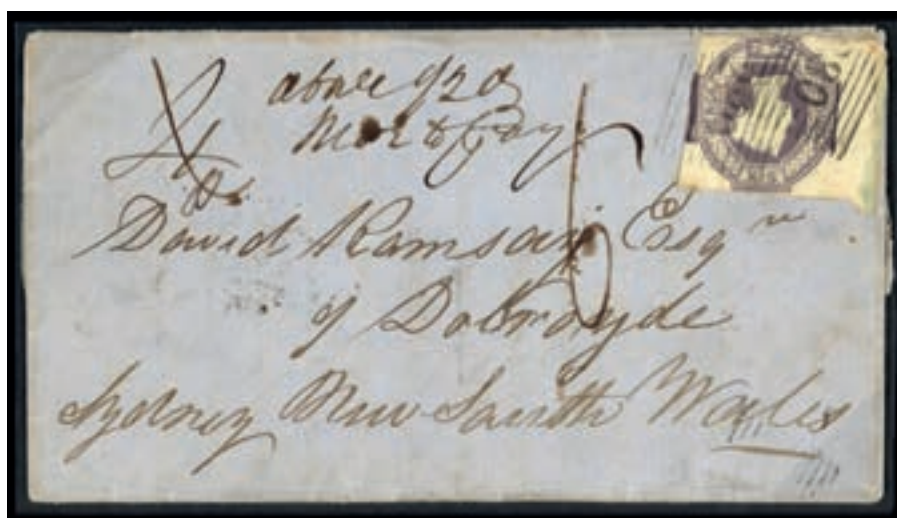 above ½ oz
More to Pay
Dr.
David Ramsay Esqre
of Dobroyde
Sydney New South Wales